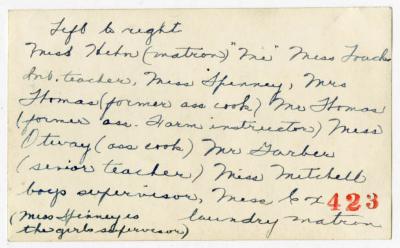 Left to right
Miss Hehn (matron) "Me" Miss Foache
Int. teacher, Miss Spinney, Mrs
Thomas (former ass cook) Mr Thomas
(former ass. Farm instructor) Miss
Otway (ass cook) Mr Garber
(senior teacher) Miss Mitchell
boys supervisor, Miss Cox 423
(Miss Spinney is laundry matron
the girls supervisor)